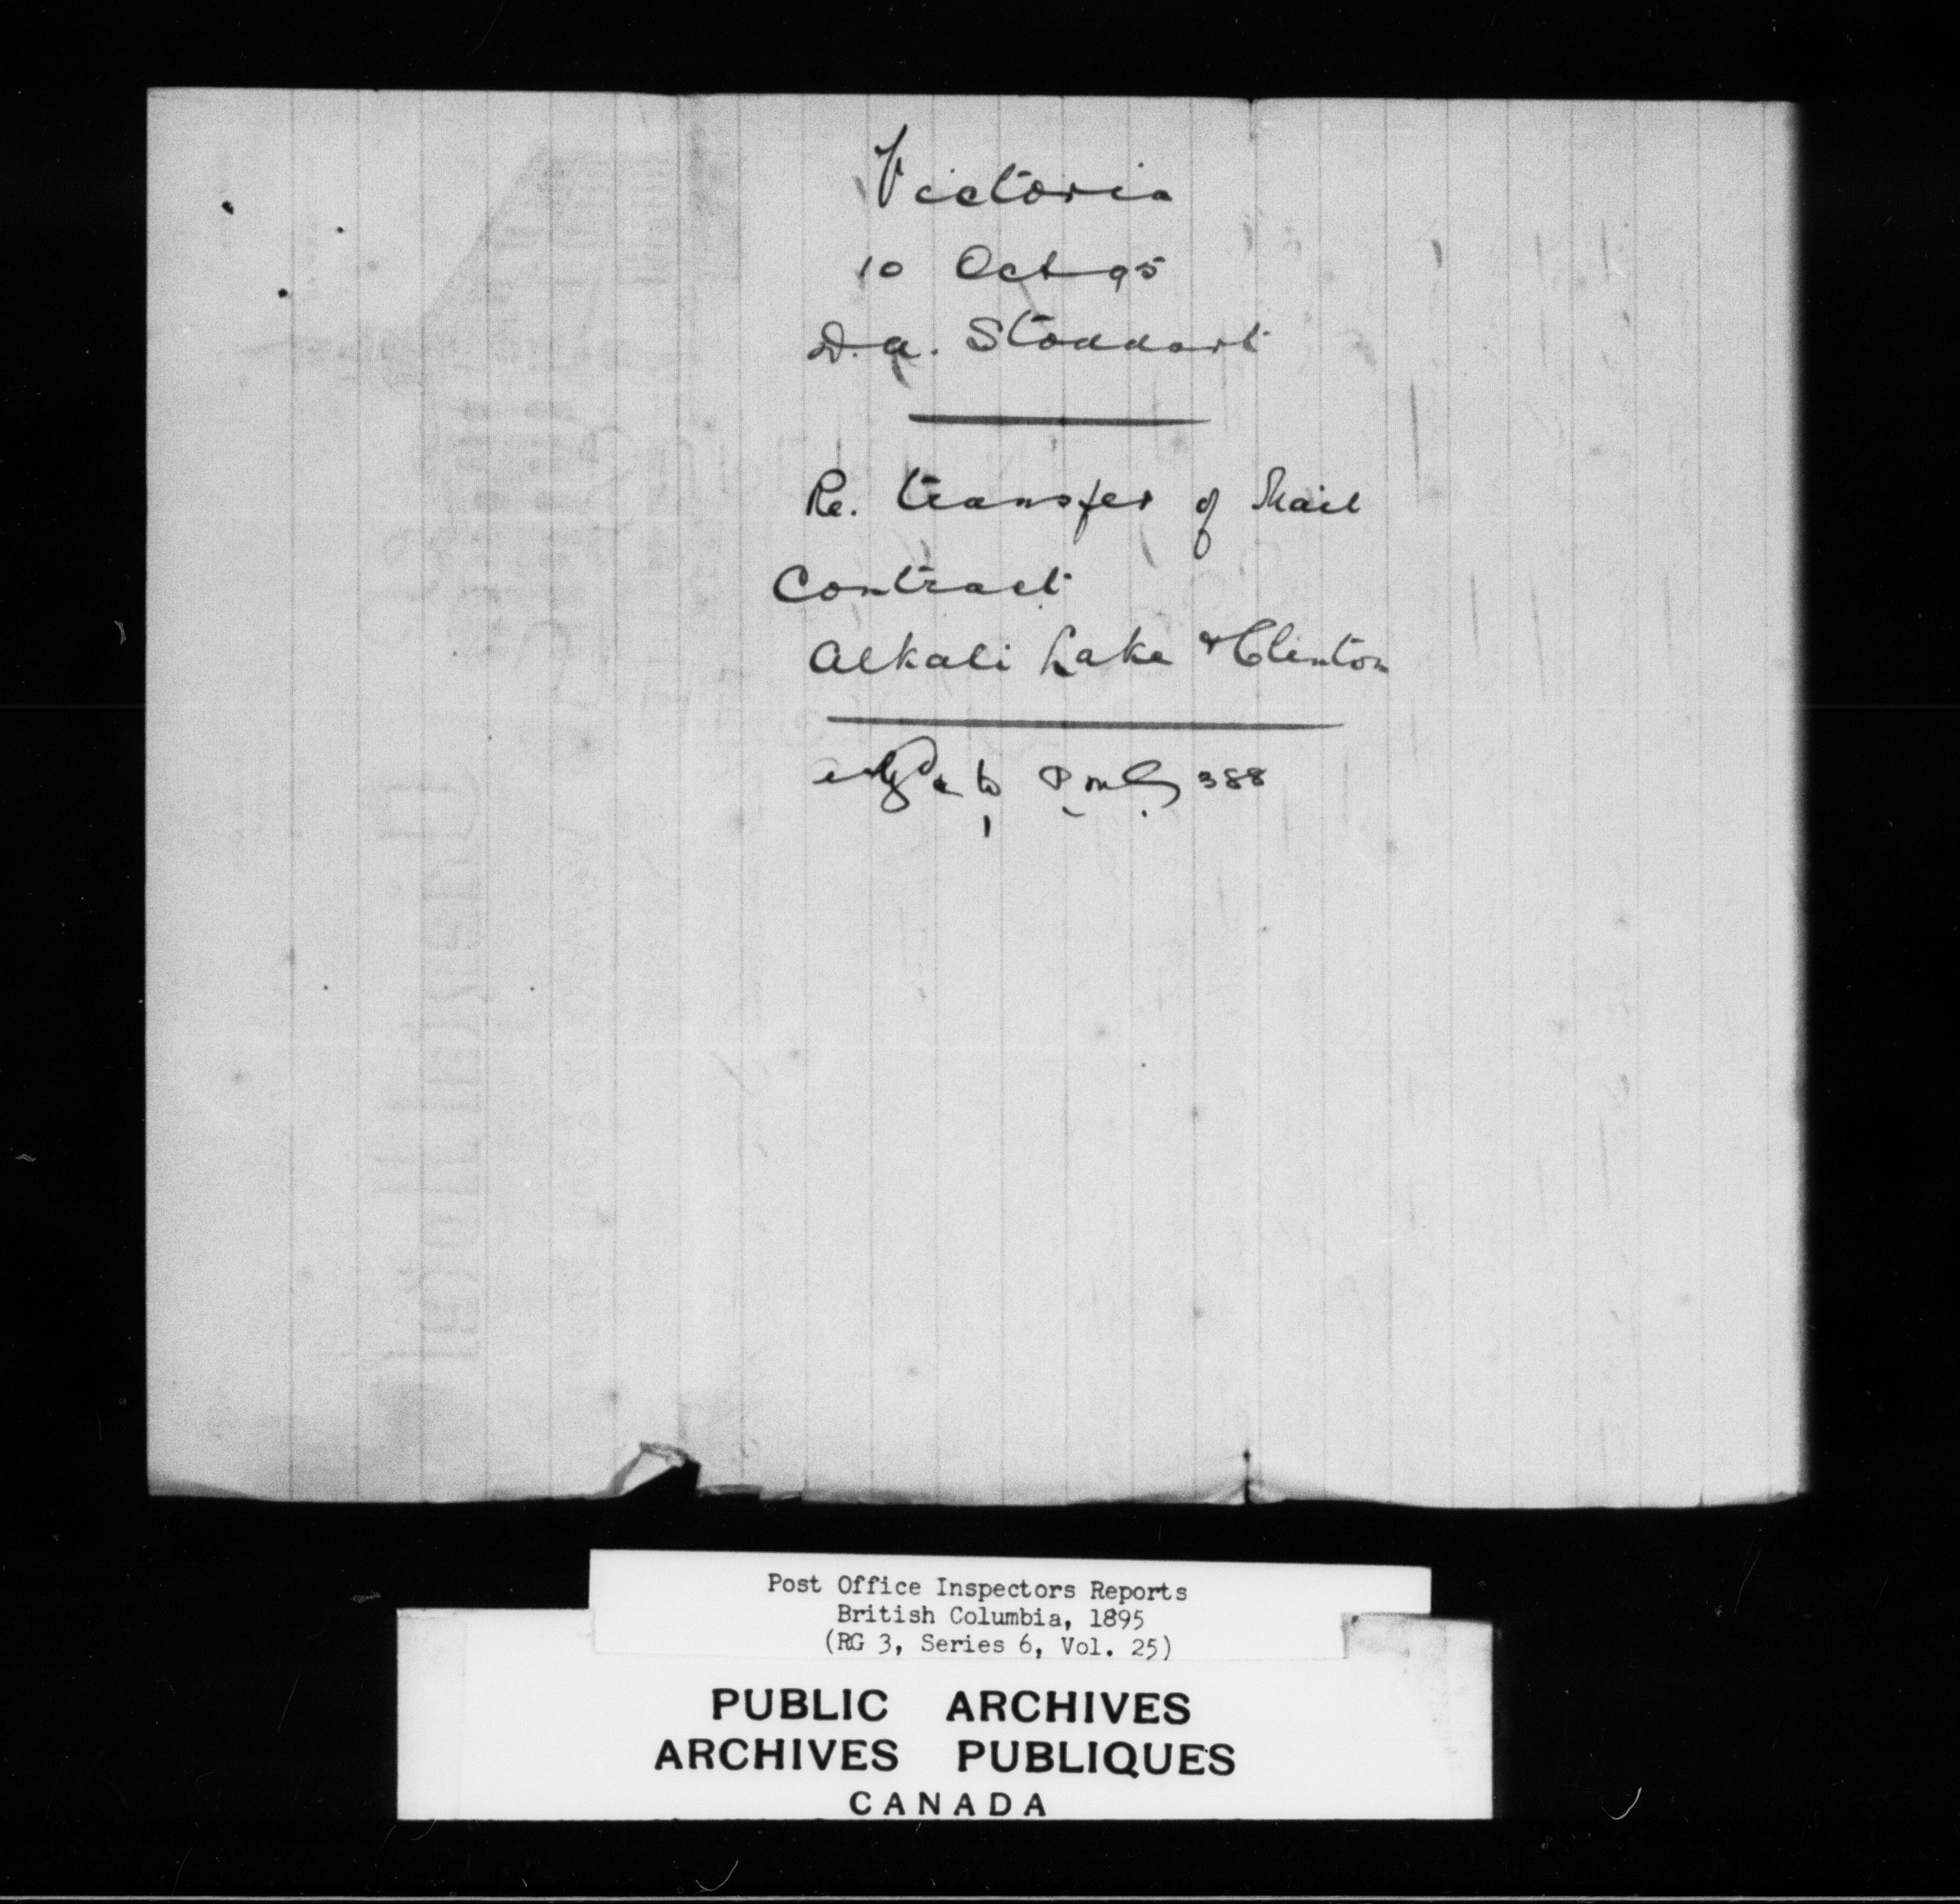 Victoria
10 Oct 95
D.A. Stoddart
Re. transfer of Mail
Contract
Alkali Lake & Clinton
to P.M.G. 388
Post Office Inspectors Reports
British Columbia, 1895
(RG 3, Series 6, Vol. 25)
PUBLIC ARCHIVES
ARCHIVES PUBLIQUES
CANADA